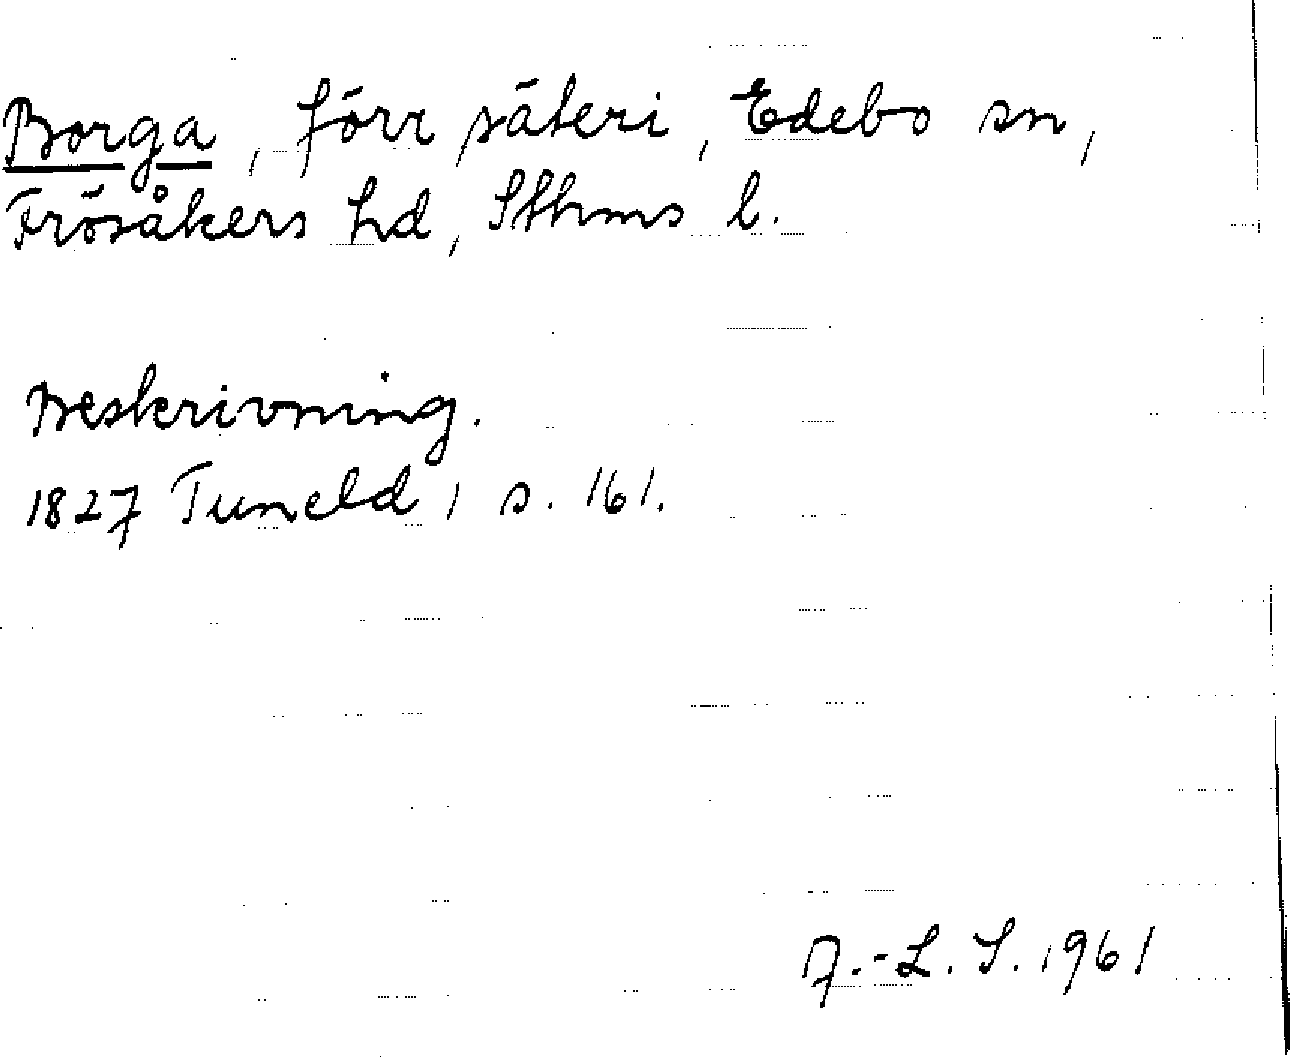 Borga, förr säteri, Edebo sn,
Frösåkers hd, Sthms l.
Beskrivning.
1827 Tuneld, s. 161.
A.-L. S. 1961